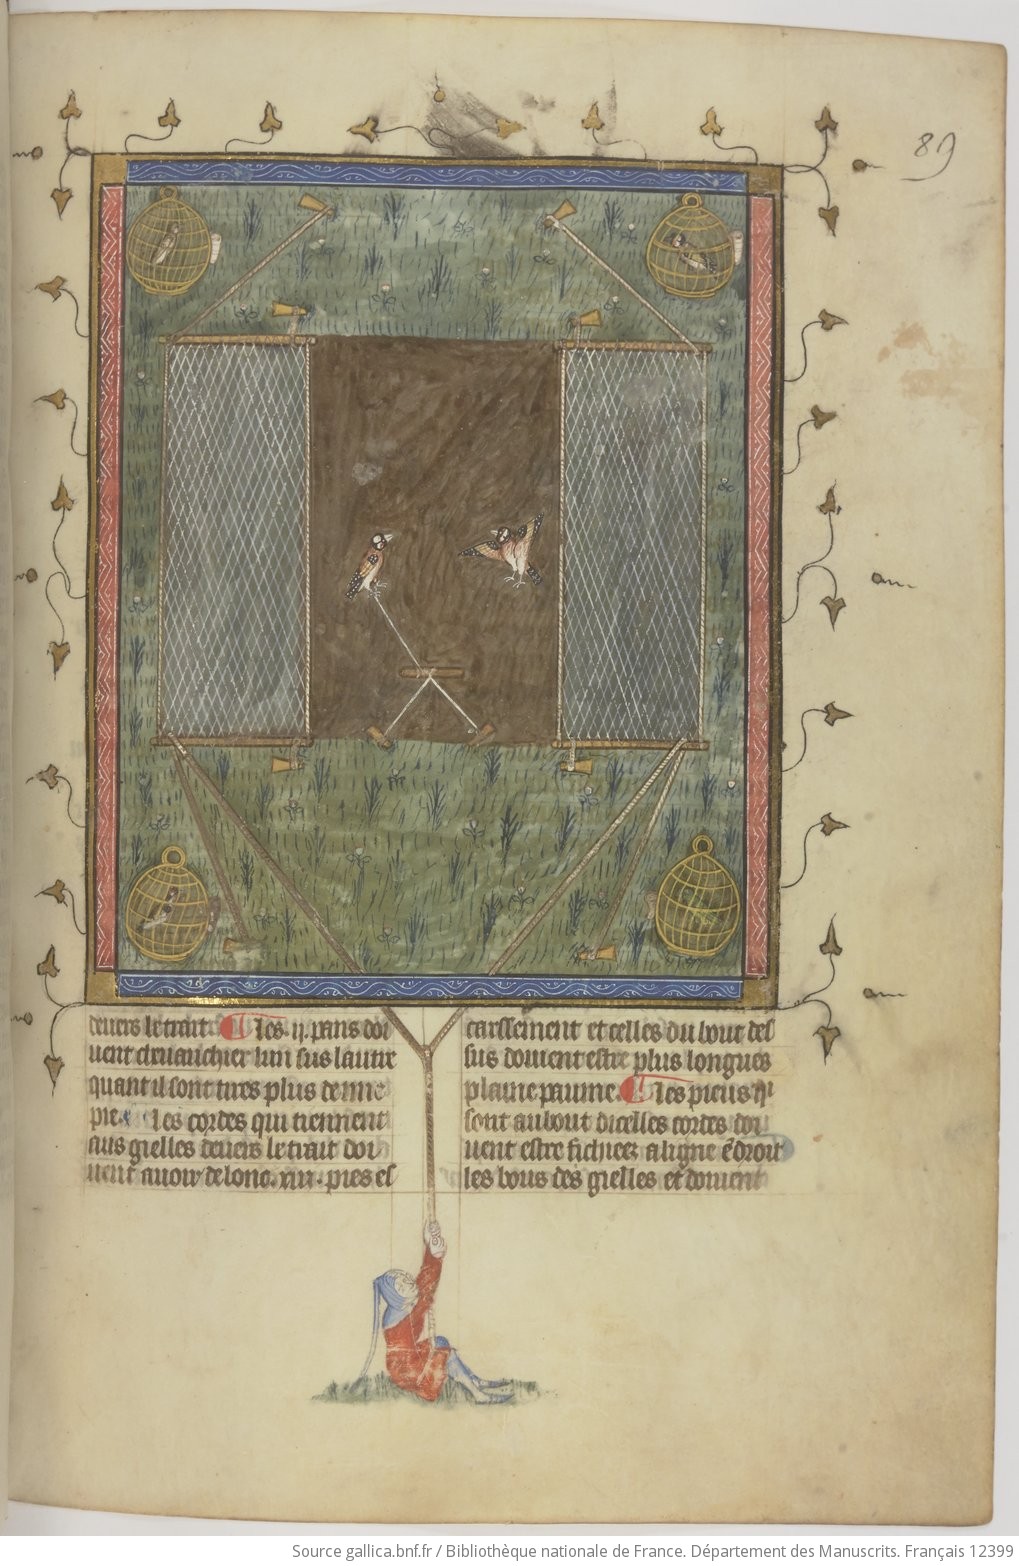 89
deuers le trait. Les .ij. pans doi
uent cheuauchier lun sus lautre
quant il sont tires plus demie
pie. Les cordes qui tiennent
aus gielles deuers le trait doi
uent auoir de lonc .xiii. pies es
carssement et celles du bout des
sus doiuent estre plus longues
plaine paume. Les pieus qi
sont au bout dicelles cordes doi
uent estre fichiez a ligne
les bous des gielles et doiuent
Source gallica.bnf.fr / Bibliothèque nationale de France. Département des Manuscrits. Français 12399